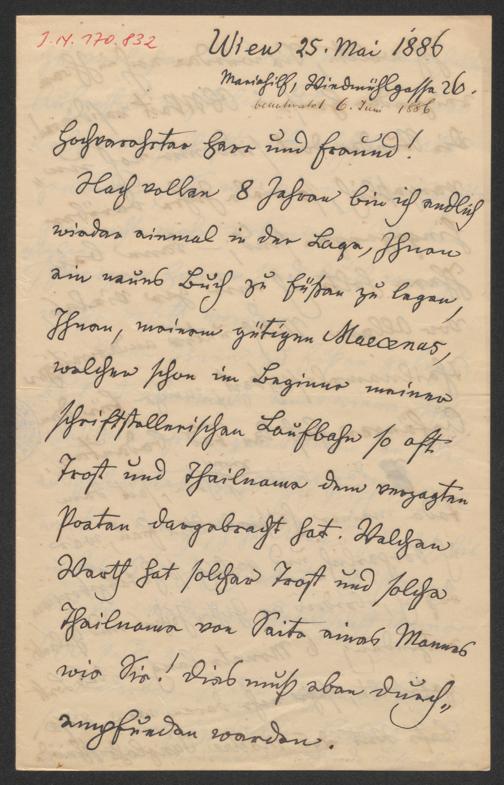 J.N. 170.832
Wien 25. Mai 1886
Mariahilf, Windmühlgasse 26.
beantwortet 6. Juni 1886
Hochverehrter Herr und Freund!
Nach vollen 8 Jahren bin ich endlich
wieder einmal in der Lage, Ihnen
ein neues Buch zu Füßen zu legen,
Ihnen, meinem gütigen Maecenas,
welcher schon im Beginne meiner
schriftstellerischen Laufbahn so oft
Trost und Theilname dem verzagten
Poeten dargebracht hat. Welchen
Werth hat solcher Trost und solche
Theilname von Seite eines Mannes
wie Sie! Dies muß eben durch„
empfunden werden.